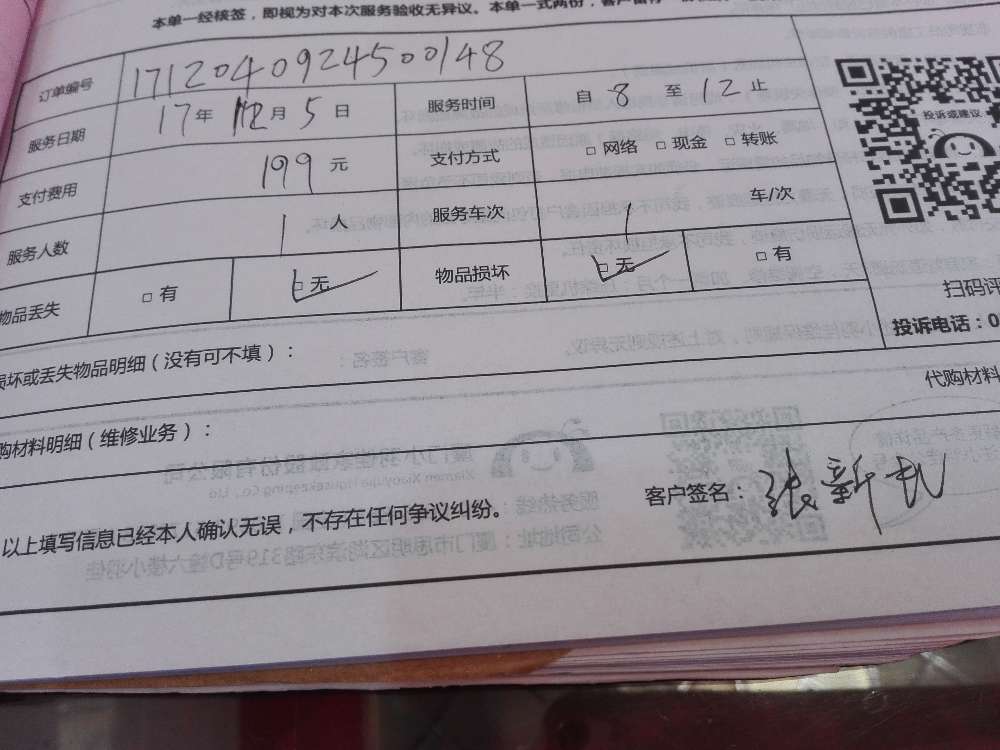 本单一经核签，即视为对本次服务验收无异议。本单一式两份，客户留存
订单编号 1712040924500148
服务日期 17年 12月 5日 服务时间 自 8 至 12 止
支付费用 199 元 支付方式 □ 网络 □ 现金 □ 转账
服务人数 1 人 服务车次 1 车/次
物品丢失 □ 有 □ 无 物品损坏 □ 无 □ 有
投诉或建议
扫码评
投诉电话：0
损坏或丢失物品明细（没有可不填）：
代购材料
购材料明细（维修业务）：
以上填写信息已经本人确认无误，不存在任何争议纠纷。
客户签名：张新